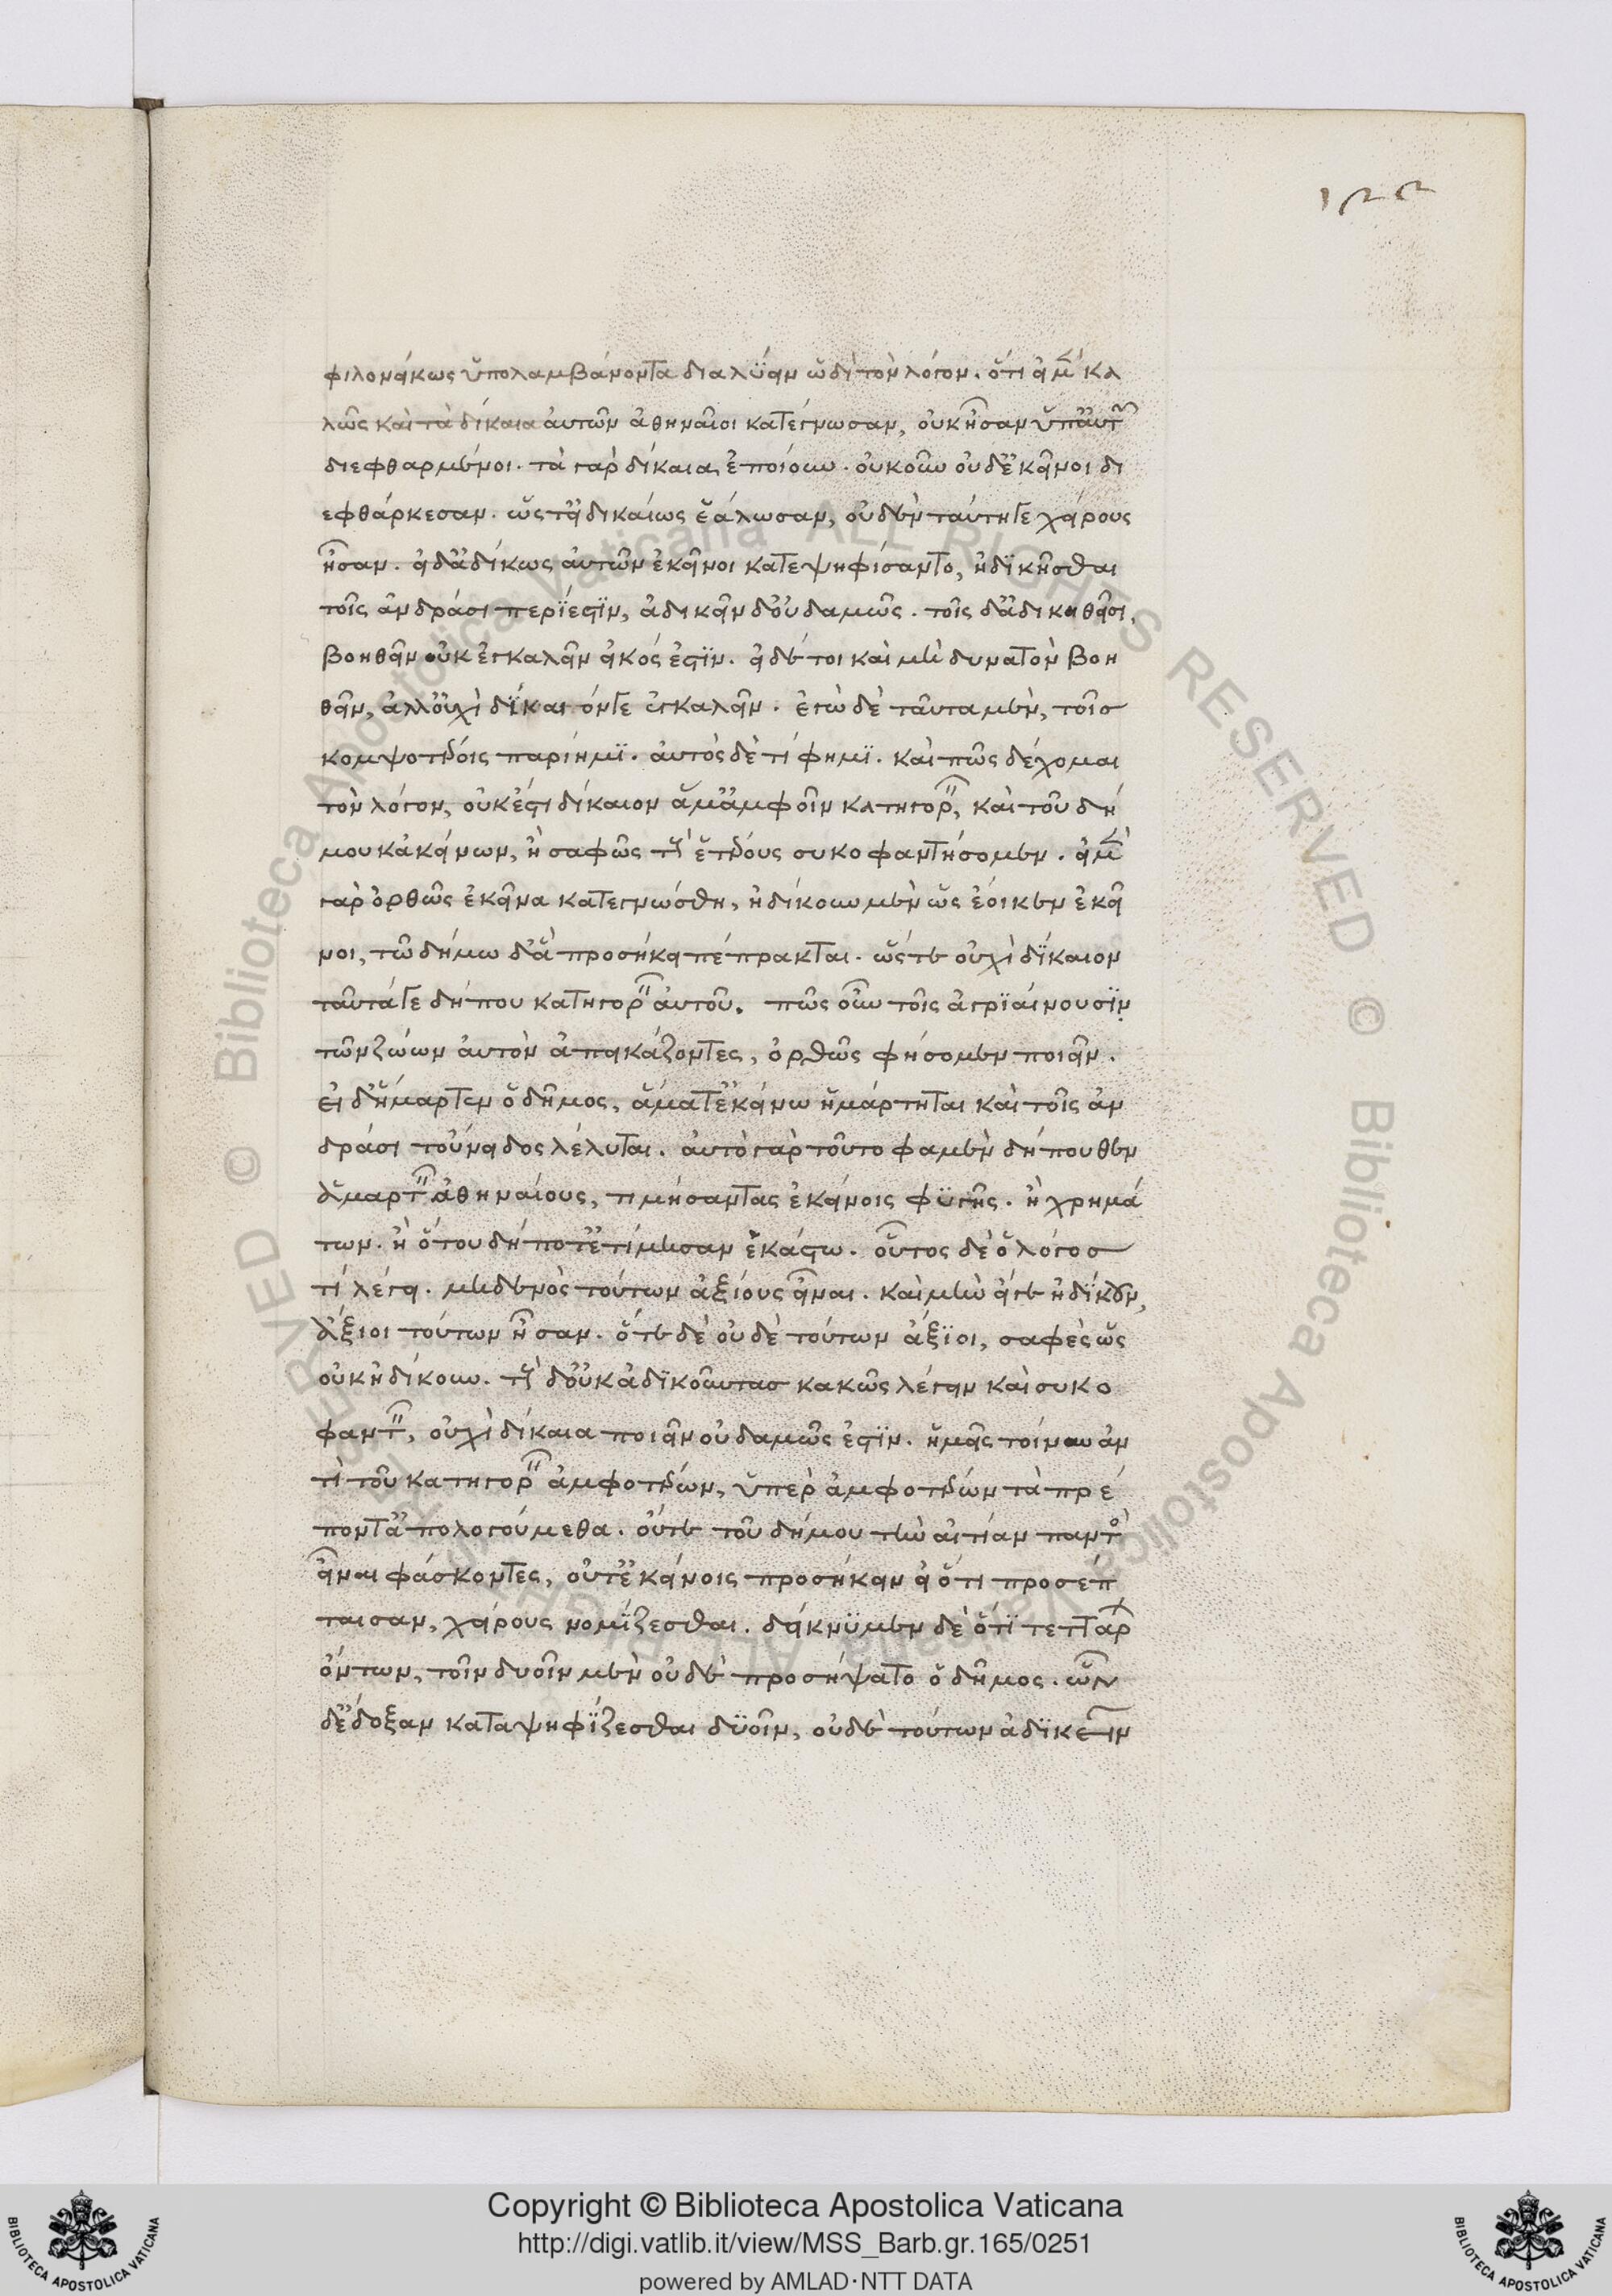 155
φιλονείκως ὑπολαμβάνοντα διαλύειν ὡδὶ τὸν λόγον. ὅτι εἰ μὲν κα
λῶς καὶ τὰ δίκαια αὐτῶν ἀθηναῖοι κατέγνωσαν, οὐκ ἦσαν ὑπ' αὐτῶν
διεφθαρμένοι. τὰ γὰρ δίκαια ἐποίουν. οὐκοῦν οὐδ' ἐκεῖνοι δι
εφθάρκεσαν. ὥστ' εἰ δικαίως ἑάλωσαν, οὐδὲν ταύτῃ γε χείρους
ἦσαν. εἰ δ' ἀδίκως αὐτῶν ἐκεῖνοι κατεψηφίσαντο, ἠδικῆσθαι
τοῖς ἀνδράσι περίεστιν, ἀδικεῖν δ' οὐδαμῶς. τοῖς δ' ἀδικηθεῖσι,
βοηθεῖν οὐκ ἐγκαλεῖν εἰκός ἐστιν. εἰ δέ τοι καὶ μὴ δυνατὸν βοη
θεῖν, ἀλλ' οὐχὶ δίκαιόν γε ἐγκαλεῖν. ἐγὼ δὲ ταῦτα μὲν, τοῖσ
κομψοτέροις παρίημι. αὐτὸς δὲ τί φημι. καὶ πῶς δέχομαι
τὸν λόγον, οὐκ ἔστι δίκαιον ἅμ' ἀμφοῖν κατηγορεῖν, καὶ τοῦ δή
μου κἀκείνων, ἢ σαφῶς τοὺς ἑτέρους συκοφαντήσομεν. εἰ μὲν
γὰρ ὀρθῶς ἐκεῖνα κατεγνώσθη, ἠδίκουν μὲν ὡς ἔοικεν ἐκεῖ
νοι, τῷ δήμῳ δ' ἃ προσήκει πέπρακται. ὥστε οὐχὶ δίκαιον
ταῦτά γε δήπου κατηγορεῖν αὐτοῦ. πῶς οὖν τοῖς ἀγριαίνουσιν
τῶν ζώων αὐτὸν ἀπεικάζοντες, ὀρθῶς φήσομεν ποιεῖν.
εἰ δ' ἥμαρτεν ὁ δῆμος, ἅμα τ' ἐκείνῳ ἡμάρτηται καὶ τοῖς ἀν
δράσι τοὔνειδος λέλυται. αὐτὸ γὰρ τοῦτο φαμὲν δήπουθεν
ἁμαρτεῖν ἀθηναίους, τιμήσαντας ἐκείνοις φυγῆς. ἢ χρημά
των. ἢ ὅτου δήποτ' ἐτίμησαν ἑκάστῳ. οὗτος δὲ ὁ λόγοσ
τί λέγει. μηδενὸς τούτων ἀξίους εἶναι. καὶ μὴν εἴγε ἠδίκουν,
ἄξιοι τούτων ἦσαν. ὅτε δὲ οὐδὲ τούτων ἄξιοι, σαφὲς ὡς
οὐκ ἠδίκουν. τοὺς δ' οὐκ ἀδικοῦντασ κακῶς λέγειν καὶ συκο
φαντεῖν, οὐχὶ δίκαια ποιεῖν οὐδαμῶς ἐστιν. ἡμεῖς τοίνυν ἀν
τὶ τοῦ κατηγορεῖν ἀμφοτέρων, ὑπὲρ ἀμφοτέρων τὰ πρέ
ποντ' ἀπολογούμεθα. οὔτε τοῦ δήμου τὴν αἰτίαν παντὸς
εἶναι φάσκοντες, οὔτ' ἐκείνοις προσήκειν εἰ ὅτι προσέπ
ταισαν, χείρους νομίζεσθαι. δείκνυμεν δὲ ὅτι τεττάρων
ὄντων, τοῖν δυοῖν μὲν οὐδὲ προσήψατο ὁ δῆμος. ὧν
δ' ἔδοξαν καταψηφίζεσθαι δυοῖν, οὐδὲ τούτων ἀδικεῖν
© Biblioteca Apostolica Vaticana ALL RIGHTS RESERVED © Biblioteca Apostolica Vaticana ALL RIGHTS RESERVED
BIBLIOTECA APOSTOLICA VATICANA
Copyright © Biblioteca Apostolica Vaticana
http://digi.vatlib.it/view/MSS_Barb.gr.165/0251
powered by AMLAD·NTT DATA
BIBLIOTECA APOSTOLICA VATICANA